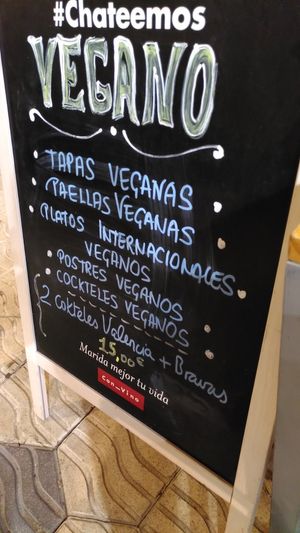 #Chateemos
VEGANO
• TAPAS VEGANAS
• PAELLAS VEGANAS
• PLATOS INTERNACIONALES
VEGANOS
• POSTRES VEGANOS
• COCKTELES VEGANOS
2 cokteles Valencia + Bravas
15,00€
Marida mejor tu vida
Con_Vino